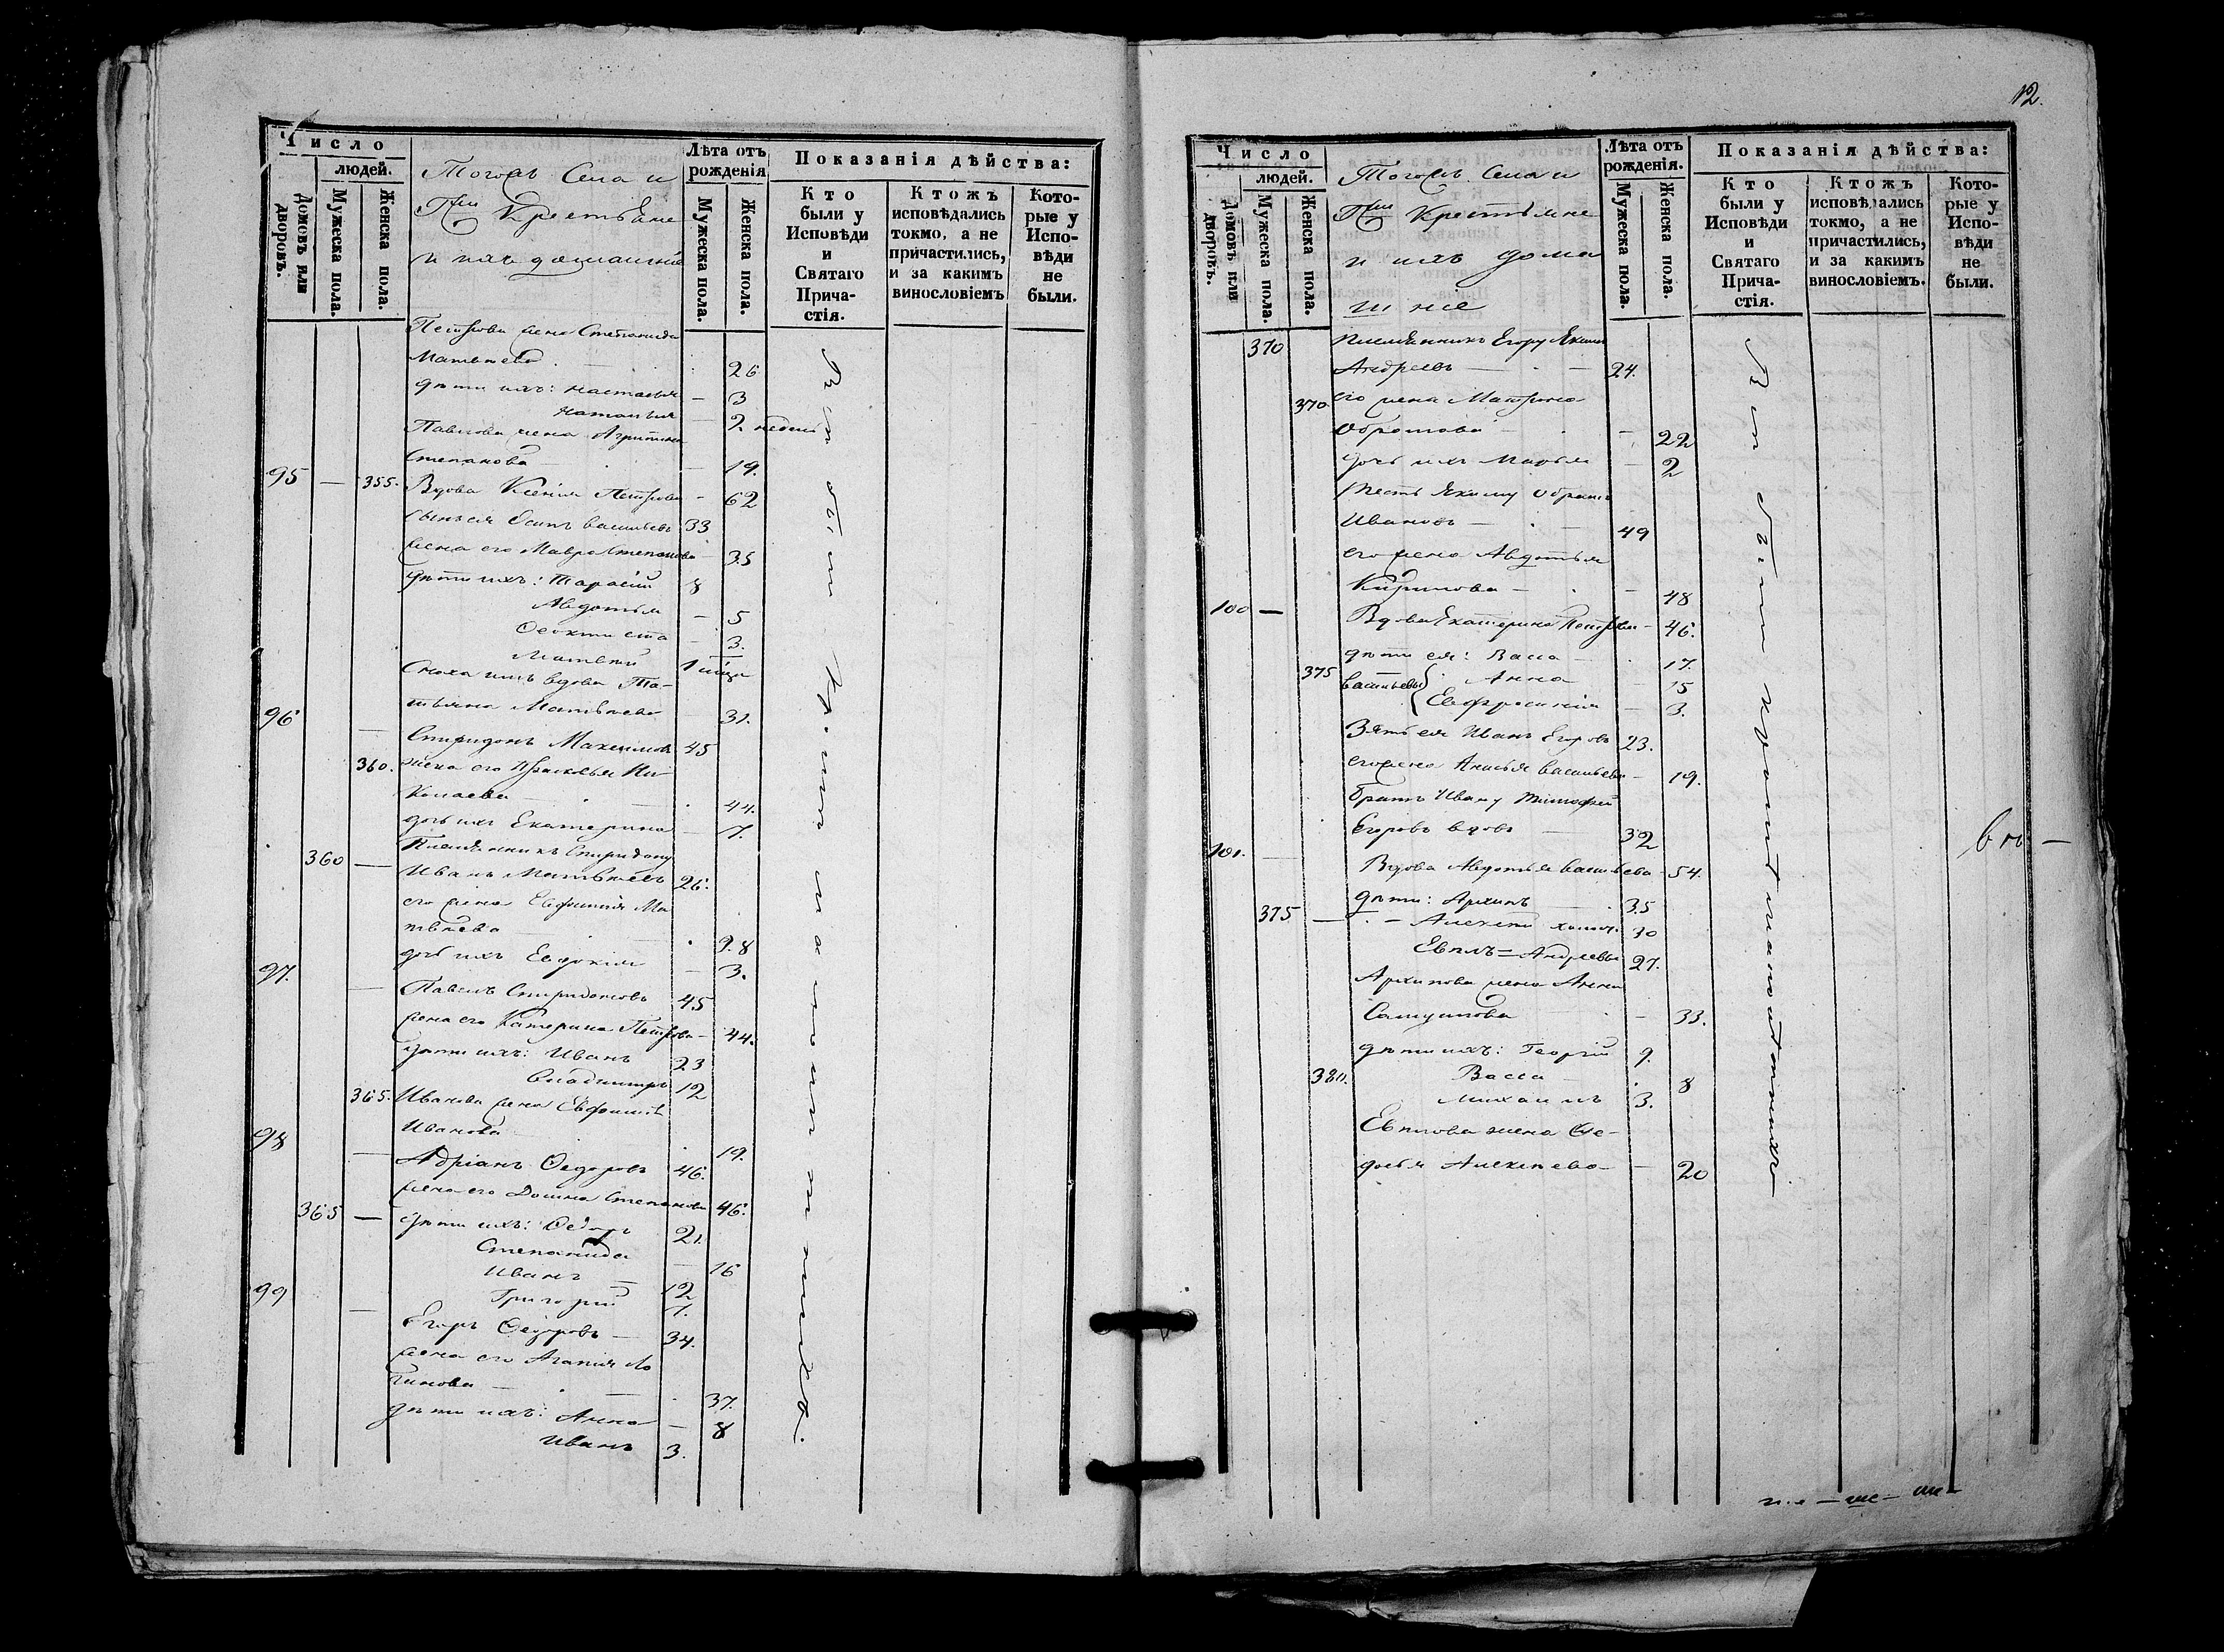 Число
людей.
Домовъ или дворовъ.
Мужеска пола.
Женска пола.
Тогожъ Села и
Крестьяне
и ихъ домашніе
Лѣта отъ рожденія
Мужеска пола.
Женска пола.
Показанія дѣйства:
Кто были у Исповѣди и Святаго Причастія.
Ктожъ исповѣдались токмо, а не причастились, и за какимъ винословіемъ
Которые у Исповѣди не были.
Петрова жена Степанида
Матвѣева 26
дѣти ихъ: Настасья — 3
Наталья — 2 недель
Павлова жена Агрипина
Степанова — 19.
95 — 355. Вдова Ксенія Петрова - 62
Сынъ ея Осипъ Васильевъ 33
жена его Мавра Степанова — 35
дѣти ихъ: Тарасій 8
Авдотья — 5
Ѳеоктиста — 3.
Матвѣй 1
Сноха ихъ вдова Та-
тьяна Матвѣева 31.
96 — Спиридонъ Максимовъ 45
360. жена его Прасковья Ни
колаева — 44.
дочь ихъ Екатерина — 7.
Племянникъ Спиридону
360 — Иванъ Матвѣевъ 26.
его жена Евфимія Ма
твѣева — 28
дочь ихъ Евдокія — 3.
97. — Павелъ Спиридоновъ 45
жена его Катерина Петрова — 44.
дѣти ихъ: Иванъ 23
Владимиръ 12
365. Иванова жена Евфимія
Иванова 19.
98 — Адріанъ Ѳедоровъ 46.
жена его Домна Степанова 46.
365 — дѣти ихъ: Ѳедоръ 21.
Степанида — 16
Иванъ — 12
Григорій 7.
99 — Егоръ Ѳедоровъ — 34.
жена его Агапія Ло
гинова — 37.
дѣти ихъ: Анна — 8
Иванъ 3.
12.
Число
людей.
Домовъ или дворовъ.
Мужеска пола.
Женска пола.
Тогожъ Села и
Крестьяне
и ихъ дома
шніе
Лѣта отъ рожденія.
Мужеска пола.
Женска пола.
Показанія дѣйства:
Кто были у Исповѣди и Святаго Причастія.
Ктожъ исповѣдались токмо, а не причастились, и за какимъ винословіемъ.
Которые у Исповѣди не были.
370 Племянникъ Егору
Андреевъ — 24.
370. его жена Матрена
— 22
дочь ихъ Марья — 2
Иванов — 49
его жена Авдотья
Кирилова — 48
100 — Вдова Екатерина Петрова - 46.
дѣти ея: Васса — 17.
375 Васильевы Анна — 15
Евфросинія — 3.
Зять ея Иванъ Егоровъ 23.
его жена Анисья Васильева — 19.
братъ Ивану Тимофей
Егоровъ вдовъ — 32
101. — Вдова Авдотья Васильева 54.
дѣти: Архипъ 35
375 — Алексѣй 30
Евплъ = Андреевы 27.
Архипова жена Анна
— 33.
дѣти ихъ: Георгій 9.
380. Васса 8
Михаилъ 3.
Евплова жена Ѳе-
досья Алексѣева — 20